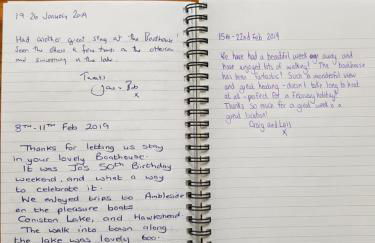 19-26 January 2019
Had another great stay at the Boathouse!
Seen the otters a few times on the
and swimming in the lake.
Thanks
x
8TH-11TH Feb 2019
Thanks for letting us stay
in your lovely Boathouse.
It was Jo's 50th Birthday
weekend, and what a way
to celebrate it.
We enjoyed trips to Ambleside
on the pleasure boats
Coniston Lake, and Hawkshead.
The walk into town along
the lake was lovely too.
15th-22nd Feb 2019
We have had a beautiful week away, and
have enjoyed lots of walking! The boathouse
has been fantastic! Such a wonderful view
and great heating - doesn't take long to heat
at all - perfect for a February holiday!
Thanks so much for a great week in a
great location!
Craig and
x